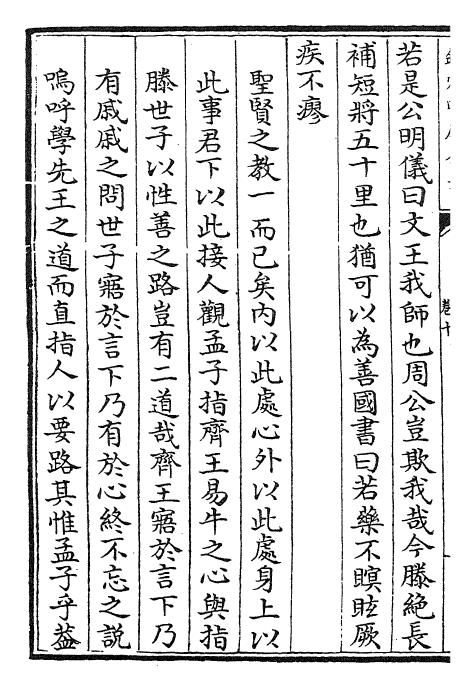 若是公明儀曰文王我師也周公豈欺我哉今滕絶長
補短將五十里也猶可以為善國書曰若藥不瞑眩厥
疾不瘳
聖賢之教一而已矣内以此處心外以此處身上以
此事君下以此接人觀孟子指齊王易牛之心與指
滕世子以性善之路豈有二道哉齊王寤於言下乃
有戚戚之問世子寤於言下乃有於心終不忘之説
嗚呼學先王之道而直指人以要路其惟孟子乎葢